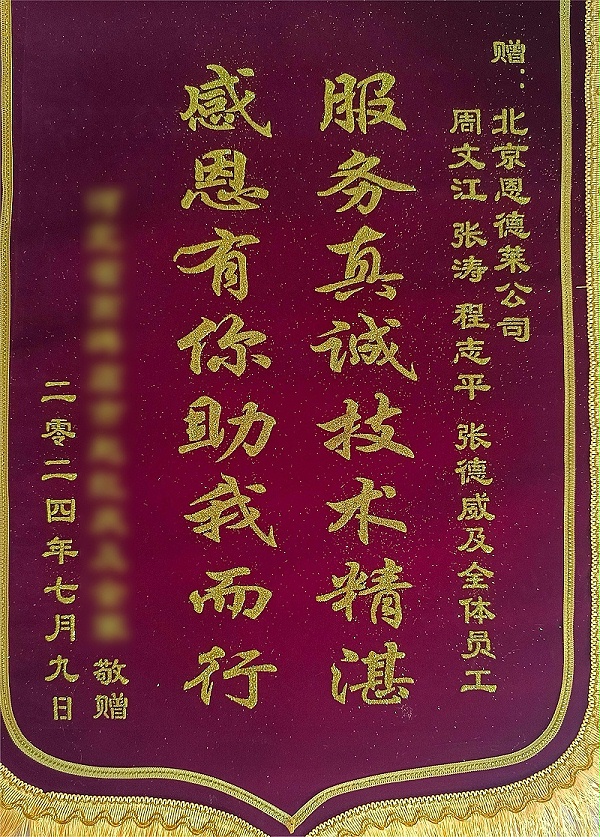 赠：北京恩德莱公司
周文江 张涛 程志平 张德威及全体员工
服务真诚技术精湛
感恩有你助我而行
敬赠
二零二四年七月九日